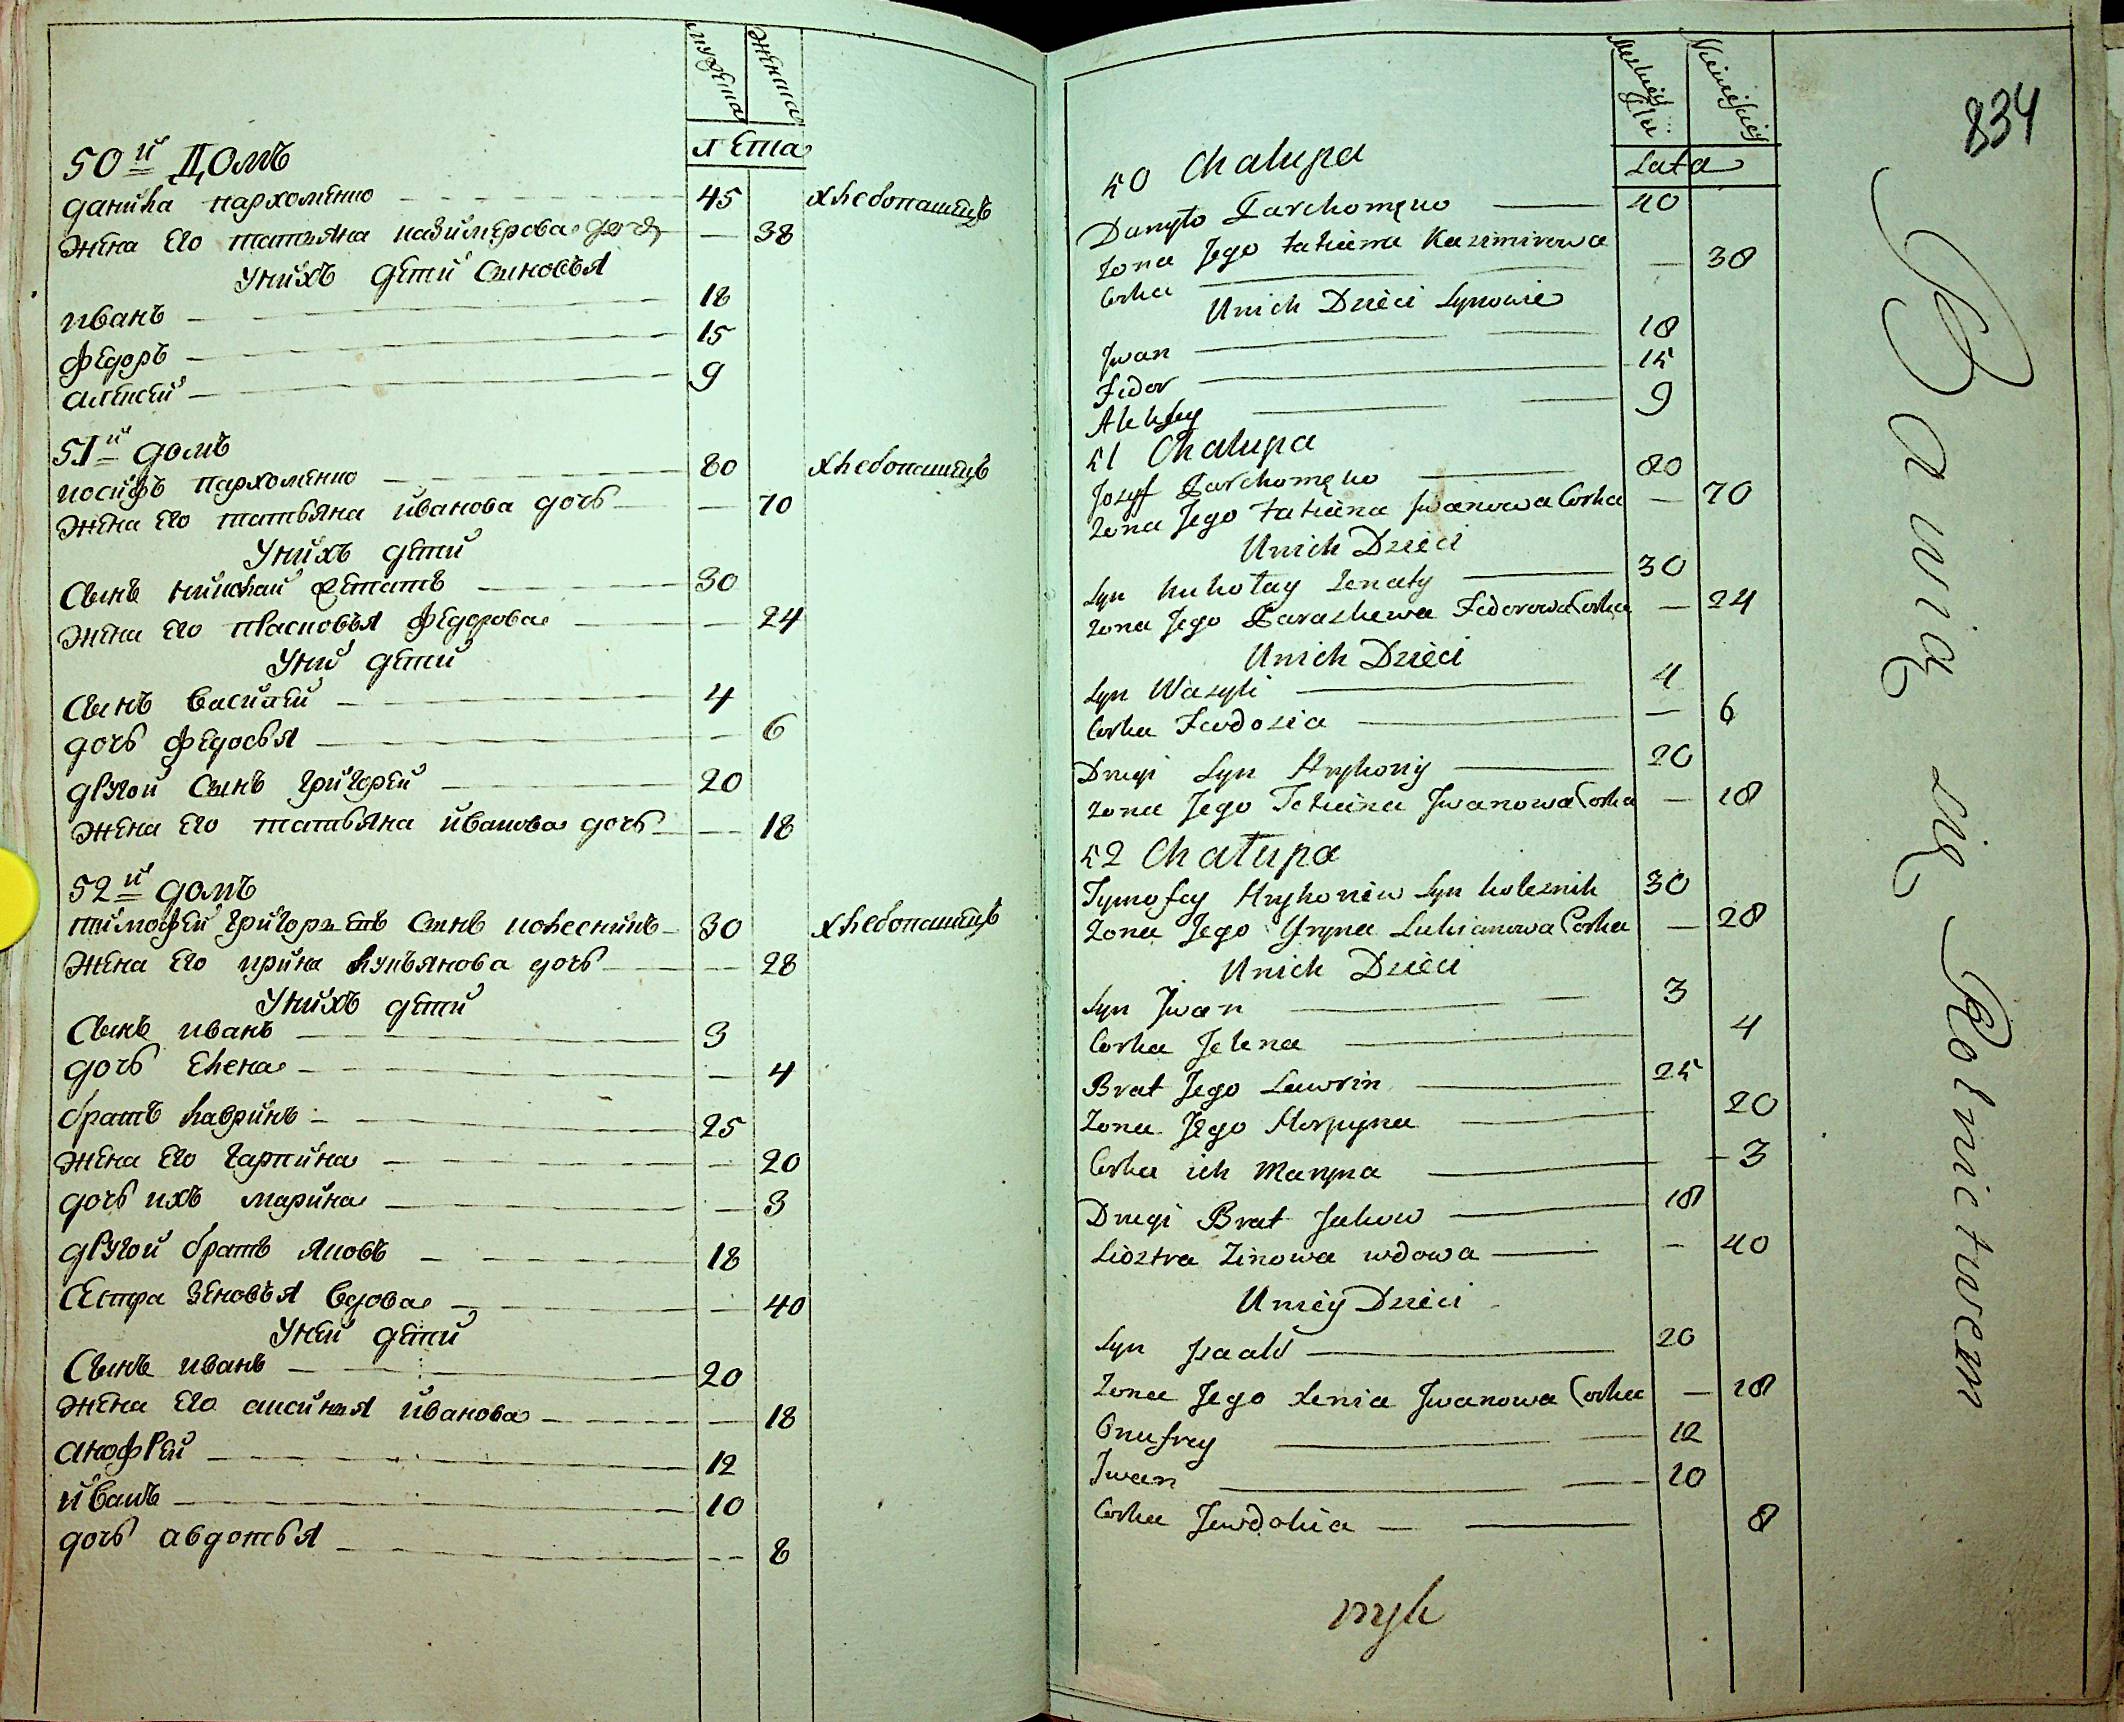 мужеска
женска
Лета
50й Домъ
данила пархоменко 45 хлебопашецъ
жена его татьяна казимерова дочь — 38
Унихъ дети Сыновья
иванъ 18
федоръ 15
алексей 9
51й домъ
иосифъ пархоменко 80 хлебопашецъ
жена его татьяна иванова дочь — 70
Унихъ дети
Сынъ николай 30
жена его прасковья федорова — 24
Уни дети
Сынъ василей 4
дочь федосья — 6
другой Сынъ григорей 20
жена его татьяна иванова дочь — 18
52й домъ
тимофей григорьевъ Сынъ колесникъ 30 хлебопашецъ
жена его ирина лукьянова дочь — 28
Унихъ дети
Сынъ иванъ 3
дочь елена — 4
братъ лавринъ 25
жена его гарпина — 20
дочь ихъ марина — 3
другой братъ яковъ 18
Сестра зеновья вдова — 40
Уней дети
Сынъ иванъ 20
жена его аксинья иванова — 18
анофрей 12
иванъ 10
дочь авдотья — 8
834
Lata
50 Chalupa
Danyło Parchomęko 40
zona Jego tatiana Kazimirowa — 38
Corka
Unich Dzieci Synowie
Jwan 18
Fedor 15
Aleksey 9
51 Chalupa
Jozyf Parchomęko 80
zona Jego tatiana Jwanowa Corka — 70
Unich Dzieci
Syn Mikołay Zenaty 30
zona Jego Paraskewa Fedorowa Corka — 24
Unich Dzieci
Syn Wasyli 4
Corka Fewdosia — 6
Drugi Syn Hryhory 20
zona Jego Tatiana Jwanowa Corka — 18
52 Chałupa
Tymofey Hryhoriew Syn kolesnik 30
zona Jego Yryna Lukianowa Corka — 28
Unich Dzieci
Syn Jwan 3
Corka Jelena 4
Brat Jego Lawrin 25
Zona Jego Horpyna 20
Corka ich Maryna — 3
Drugi Brat Jakow 18
Siostra Zinowa wdowa — 40
Uniey Dzieci
Syn 20
Zona Jego xenia Jwanowa Corka — 18
Onufrey 12
Jwan 10
Corka Jewdokia — 8
Bawią się Rolnictwem